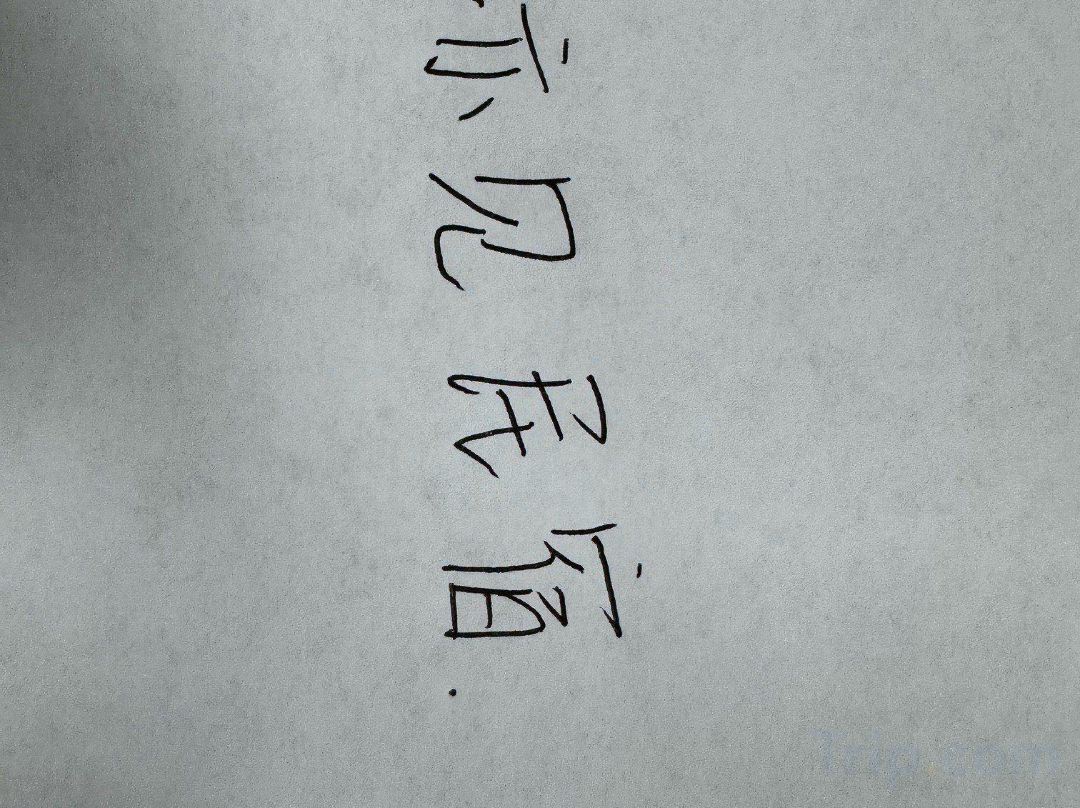 亦见民宿.
Trip.com